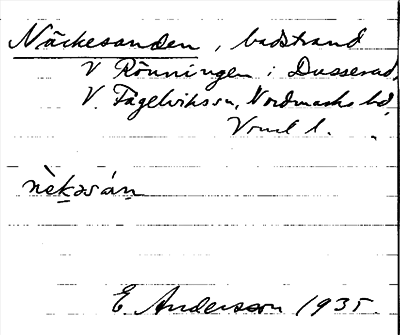 Näckesanden, badstrand
V Rönningen i Dusserud,
V. Fågelvikssn, Nordmarks hd,
Vrml l.
nèkəsán
E. Anderson 1935.